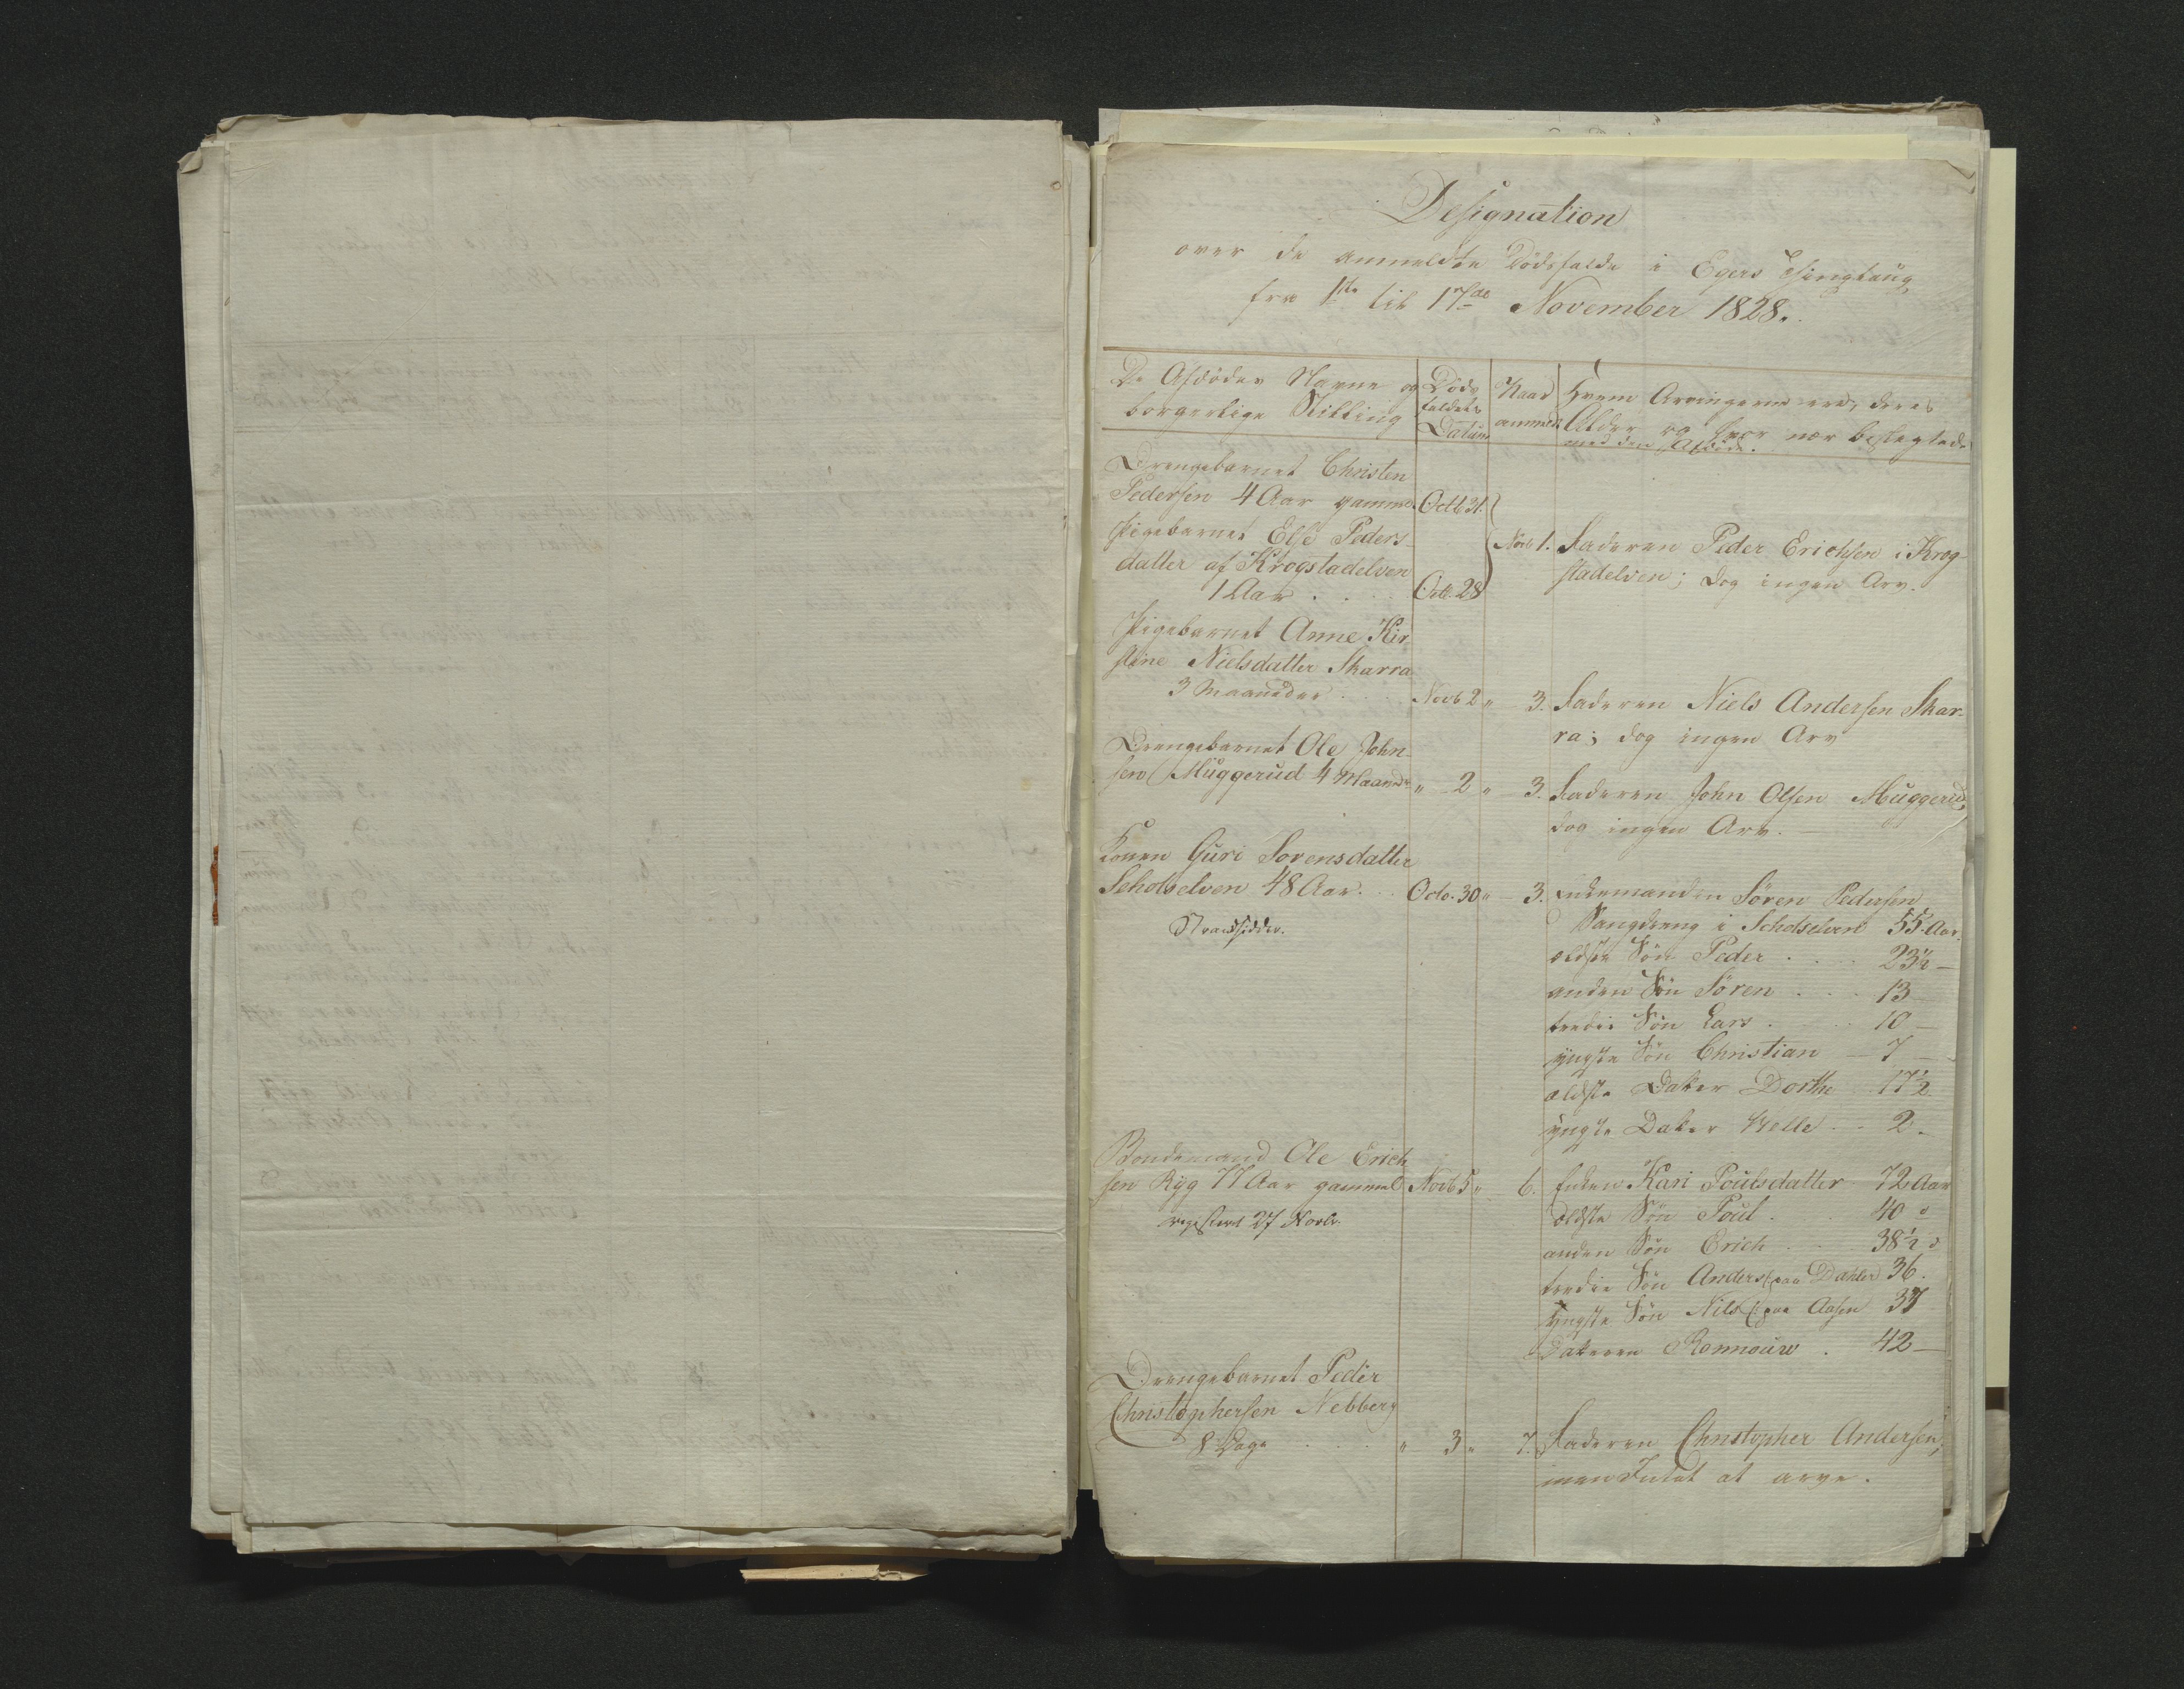 Designation
over de anmeldte Dødsfalde i Egers Thinglaug
fra 1ste til 17de November 1828.
De Afdødes Navne og
borgerlige Stilling
Døds
faldets
Datum
Naar
anmeldt
Hvem Arvingerne ere, deres
Alder og hvor nær beslegtede
med den Afdøde.
Drengebarnet Christen
Pedersen 4 Aar gammel Octb 31.
Pigebarnet Else Peders-
datter af Krogstadelven
1 Aar . . . Octb. 28
Novb 1. Faderen Peder Erichsen i Krog-
stadelven; dog ingen Arv.
Pigebarnet Anne Kir
stine Nielsdatter Skarra
3 Maaneder . . Novb 2 " 3. Faderen Niels Andersen Skar-
ra; dog ingen Arv
Drengebarnet Ole John-
sen Muggerud 4 Maaned " 2 " 3. Faderen John Olsen Muggerud,
dog ingen Arv. —
Konen Guri Sorensdatter
Schotselven 48 Aar. . . Octo. 30 " 3. Enkemanden Søren Pedersen
Strandsidder.
i Schotselven 55 Aar.
ældste Søn Peder . . . 23½ —
anden Søn Søren . . . 13 —
tredie Søn Lars . . . 10 —
yngste Søn Christian — 7 —
ældste Datter Dorthe 17½
yngste Datter Helle . . 2 .
Bondemand Ole Erich
sen Ryg 77 Aar gammel Novb 5 " 6. Enken Kari Poulsdatter 72 Aar
registeret 27 Novbr.
ældste Søn Poul . . 40 "
anden Søn Erich . . 38½ "
tredie Søn Anders (paa Dahler 36.
yngste Søn Nils (paa Aasen 37
Datteren Ronnouw . 42 —
Drengebarnet Peder
Christophersen Nebberg
8 Dage . . . " 3 " 7. Faderen Christopher Andersen,
men Intet at arve.